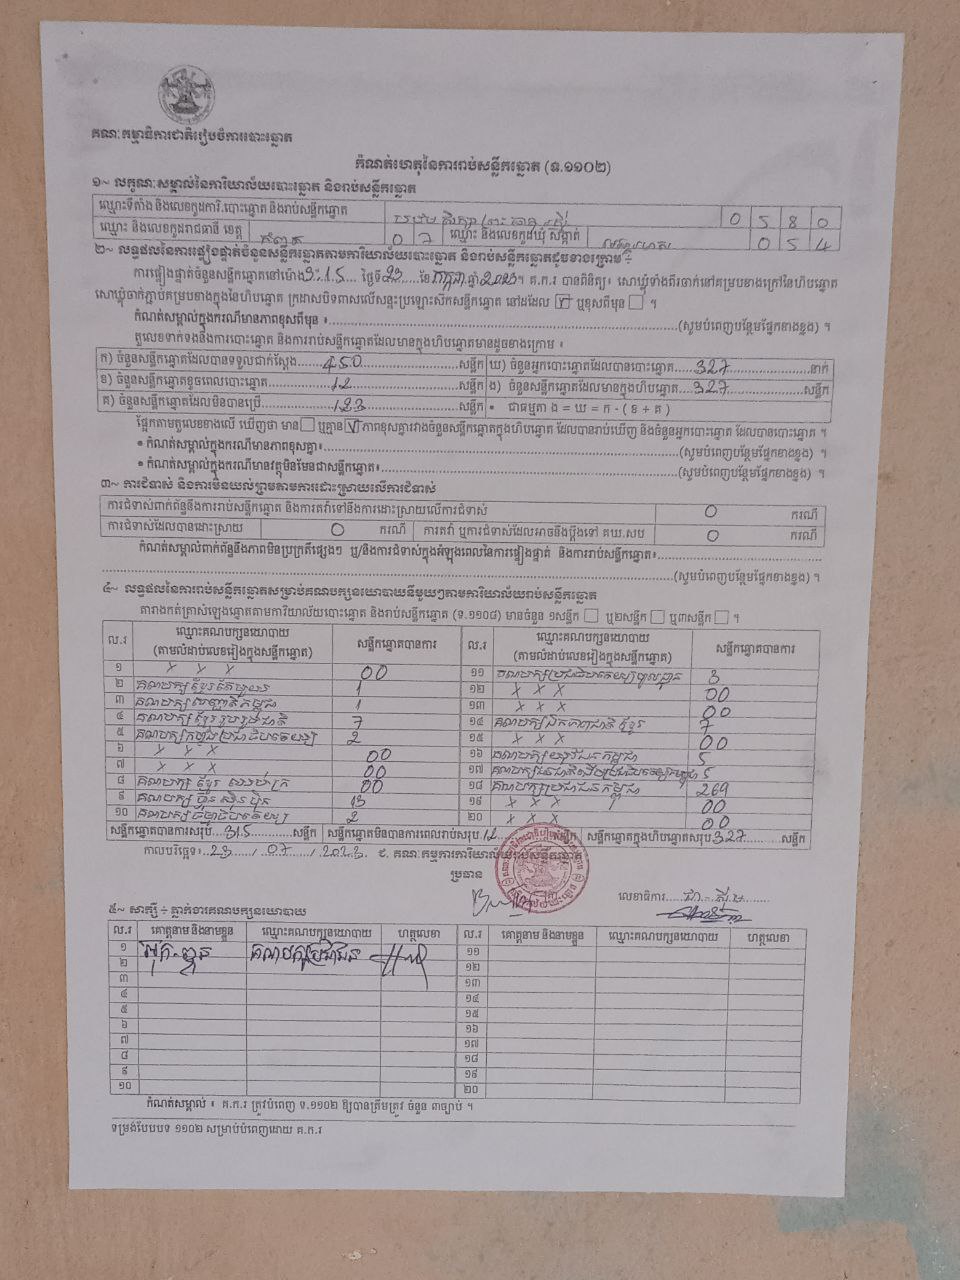 គណៈកម្មាធិការជាតិរៀបចំការបោះឆ្នោត
កំណត់ហេតុនៃការរាប់សន្លឹកឆ្នោត (ទ.១១០២)
១~ លក្ខណៈសម្គាល់នៃការិយាល័យបោះឆ្នោត និងរាប់សន្លឹកឆ្នោត
ឈ្មោះទីតាំង និងលេខកូដការិ.បោះឆ្នោត និងរាប់សន្លឹកឆ្នោត 0 5 8 0
ឈ្មោះ និងលេខកូដរាជធានី ខេត្ត កំពត 0 7 ឈ្មោះ និងលេខកូដឃុំ សង្កាត់ 0 5 4
២~ លទ្ធផលនៃការផ្ទៀងផ្ទាត់ចំនួនសន្លឹកឆ្នោតតាមការិយាល័យបោះឆ្នោត និងរាប់សន្លឹកឆ្នោតដូចខាងក្រោម ÷
ការផ្ទៀងផ្ទាត់ចំនួនសន្លឹកឆ្នោតនៅម៉ោង 3:15 ថ្ងៃទី 23 ខែ កក្កដា ឆ្នាំ 2023។ គ.ក.រ បានពិនិត្យ៖ សោឃ្លុំទាំងពីរចាក់នៅគម្របខាងក្រៅនៃហិបឆ្នោត
សោឃ្លុំចាក់ភ្ជាប់គម្របខាងក្នុងនៃហិបឆ្នោត ក្រដាសបិទពាសលើសន្ទះប្រឡោះស៊កសន្លឹកឆ្នោត នៅដដែល ☑ ឬខុសពីមុន ☐ ។
កំណត់សម្គាល់ក្នុងករណីមានភាពខុសពីមុន ៖ (សូមបំពេញបន្ថែមផ្នែកខាងខ្នង) ។
តួលេខទាក់ទងនឹងការបោះឆ្នោត និងការរាប់សន្លឹកឆ្នោតដែលមានក្នុងហិបឆ្នោតមានដូចខាងក្រោម ៖
ក) ចំនួនសន្លឹកឆ្នោតដែលបានទទួលជាក់ស្តែង 450 សន្លឹក ឃ) ចំនួនអ្នកបោះឆ្នោតដែលបានបោះឆ្នោត 327 នាក់
ខ) ចំនួនសន្លឹកឆ្នោតខូចពេលបោះឆ្នោត សន្លឹក ង) ចំនួនសន្លឹកឆ្នោតដែលមានក្នុងហិបឆ្នោត 327 សន្លឹក
គ) ចំនួនសន្លឹកឆ្នោតដែលមិនបានប្រើ 123 សន្លឹក • ជាធម្មតា ង = ឃ = ក - ( ខ + គ )
ផ្អែកតាមតួលេខខាងលើ ឃើញថា មាន ☐ ឬគ្មាន ☑ ភាពខុសគ្នារវាងចំនួនសន្លឹកឆ្នោតក្នុងហិបឆ្នោត ដែលបានរាប់ឃើញ និងចំនួនអ្នកបោះឆ្នោត ដែលបានបោះឆ្នោត ។
• កំណត់សម្គាល់ក្នុងករណីមានភាពខុសគ្នា៖ (សូមបំពេញបន្ថែមផ្នែកខាងខ្នង) ។
• កំណត់សម្គាល់ក្នុងករណីមានវត្ថុមិនមែនជាសន្លឹកឆ្នោត៖ (សូមបំពេញបន្ថែមផ្នែកខាងខ្នង) ។
៣~ ការជំទាស់ និងការមិនយល់ព្រមតាមការដោះស្រាយលើការជំទាស់
ការជំទាស់ពាក់ព័ន្ធនឹងការរាប់សន្លឹកឆ្នោត និងការតវ៉ាទៅនឹងការដោះស្រាយលើការជំទាស់ 0 ករណី
ការជំទាស់ដែលបានដោះស្រាយ 0 ករណី ការតវ៉ា ឬការជំទាស់ដែលអាចនឹងប្តឹងទៅ គឃ.សប 0 ករណី
កំណត់សម្គាល់ពាក់ព័ន្ធនឹងភាពមិនប្រក្រតីផ្សេងៗ ឬ/និងការជំទាស់ក្នុងអំឡុងពេលនៃការផ្ទៀងផ្ទាត់ និងការរាប់សន្លឹកឆ្នោត៖
(សូមបំពេញបន្ថែមផ្នែកខាងខ្នង) ។
៤~ លទ្ធផលនៃការរាប់សន្លឹកឆ្នោតសម្រាប់គណបក្សនយោបាយនីមួយៗតាមការិយាល័យរាប់សន្លឹកឆ្នោត
តារាងកត់ត្រាសំឡេងឆ្នោតតាមការិយាល័យបោះឆ្នោត និងរាប់សន្លឹកឆ្នោត (ទ.១១០៨) មានចំនួន ១សន្លឹក ☐ ឬ២សន្លឹក ☐ ឬ៣សន្លឹក ☐ ។
ល.រ ឈ្មោះគណបក្សនយោបាយ (តាមលំដាប់លេខរៀងក្នុងសន្លឹកឆ្នោត) សន្លឹកឆ្នោតបានការ ល.រ ឈ្មោះគណបក្សនយោបាយ (តាមលំដាប់លេខរៀងក្នុងសន្លឹកឆ្នោត) សន្លឹកឆ្នោតបានការ
១ X X X 00 ១១ គណបក្សប្រជាធិបតេយ្យមូលដ្ឋាន 3
២ គណបក្ស ខ្មែរតែមួយ 1 ១២ X X X 00
៣ គណបក្ស កម្ពុជា 1 ១៣ X X X 00
៤ គណបក្ស ខ្មែររួបរួមជាតិ 7 ១៤ គណបក្ស ឯកភាពជាតិ ខ្មែរ 7
៥ គណបក្ស កម្លាំងប្រជាធិបតេយ្យ 2 ១៥ X X X 00
៦ X X X 00 ១៦ គណបក្ស យុវជន កម្ពុជា 5
៧ X X X 00 ១៧ 5
៨ គណបក្ស ខ្មែរ 00 ១៨ គណបក្សប្រជាជនកម្ពុជា 269
៩ គណបក្ស ហ៊្វុនស៊ិនប៉ិច 13 ១៩ X X X 00
១០ គណបក្ស ធម្មាធិបតេយ្យ 2 ២០ X X X 00
សន្លឹកឆ្នោតបានការសរុប 315 សន្លឹក សន្លឹកឆ្នោតមិនបានការពេលរាប់សរុប 12 សន្លឹក សន្លឹកឆ្នោតក្នុងហិបឆ្នោតសរុប 327 សន្លឹក
កាលបរិច្ឆេទ៖ 23 / 07 / 2023 ជ. គណៈកម្មការការិយាល័យរាប់សន្លឹកឆ្នោត
ប្រធាន
លេខាធិការ
៥~ សាក្សី ÷ ភ្នាក់ងារគណបក្សនយោបាយ
ល.រ គោត្តនាម និងនាមខ្លួន ឈ្មោះគណបក្សនយោបាយ ហត្ថលេខា ល.រ គោត្តនាម និងនាមខ្លួន ឈ្មោះគណបក្សនយោបាយ ហត្ថលេខា
១ គណបក្សប្រជាជន ១១
២ ១២
៣ ១៣
៤ ១៤
៥ ១៥
៦ ១៦
៧ ១៧
៨ ១៨
៩ ១៩
១០ ២០
កំណត់សម្គាល់ ៖ គ.ក.រ ត្រូវបំពេញ ទ.១១០២ ឱ្យបានត្រឹមត្រូវ ចំនួន ៣ច្បាប់ ។
ទម្រង់បែបបទ ១១០២ សម្រាប់បំពេញដោយ គ.ក.រ